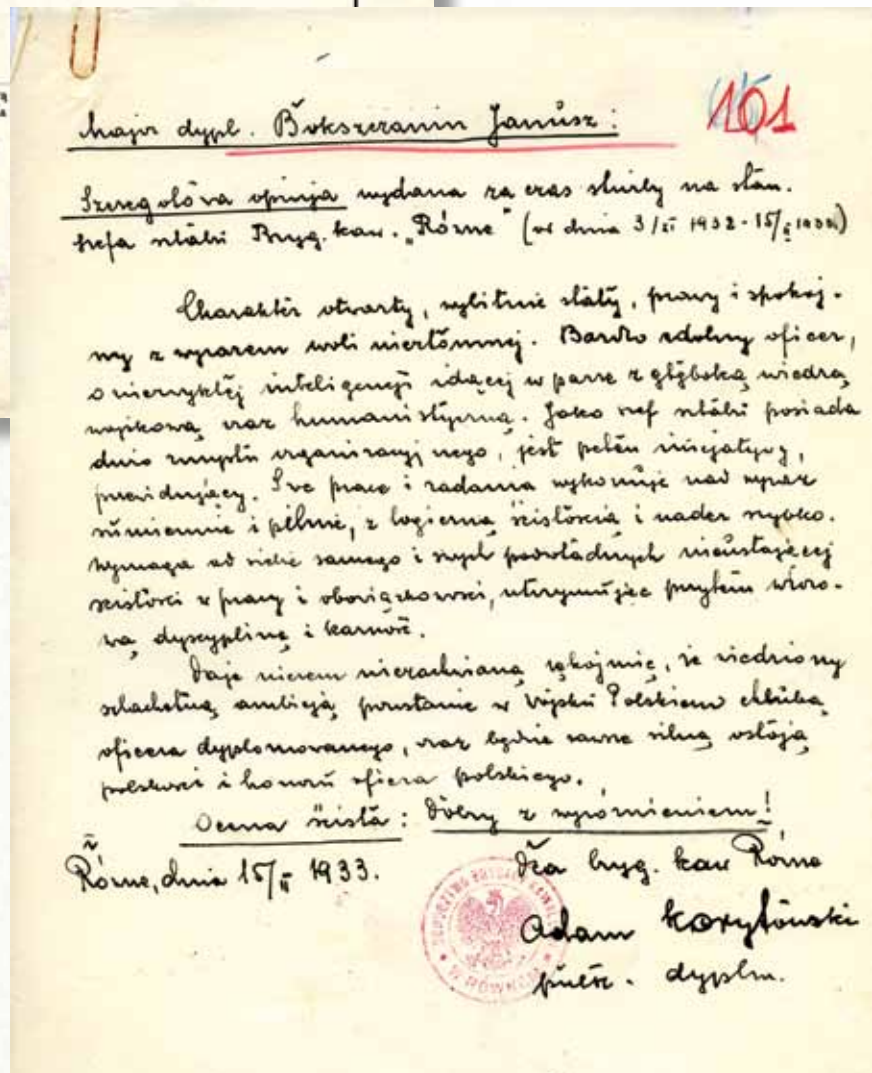 101
Major dypl. Bokszczanin Janusz:
Szczegółowa opinja wydana za czas służby na stan.
szefa sztabu Bryg. kaw. „Równe" (od dnia 3/XI 1932 - 15/II 1933)
Charakter otwarty, wybitnie stały, prawy i spokoj-
ny z wyrazem woli niezłomnej. Bardzo zdolny oficer,
o niezwykłej inteligencji idącej w parze z głęboką wiedzą
wojskową oraz humanistyczną. Jako szef sztabu posiada
dużo zmysłu organizacyjnego, jest pełen inicjatywy,
przewidujący. Swe prace i zadania wykonuje nad wyraz
sumiennie i pilnie, z logiczną ścisłością i nader szybko.
Wymaga od siebie samego i swych podwładnych nieustającej
ścisłości w pracy i obowiązkowości, utrzymując przytem wzoro-
wą dyscyplinę i karność.
Daje niczem niezachwianą rękojmię, że wiedziony
szlachetną ambicją pozostanie w Wojsku Polskiem chlubą
oficera dyplomowanego, oraz będzie zawsze silną ostoją
polskości i honoru oficera polskiego.
Ocena ścisła: Dobry z wyróżnieniem!
Równe, dnia 15/II 1933.
Dca bryg. kaw Równe
Adam Korytowski
pułk. dyplm.
DOWÓDZTWO BRYGADY KAWALERII
W RÓWNEM